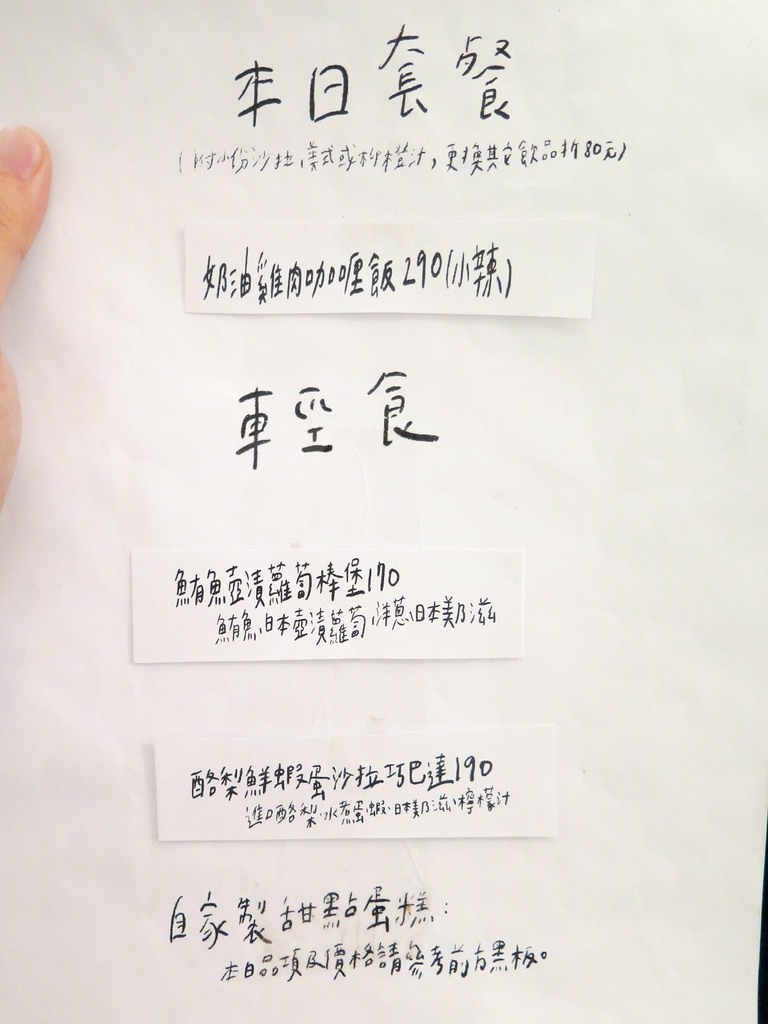 本日套餐
(附小份沙拉、美式或柳橙汁，更換其它飲品折80元)
奶油雞肉咖哩飯290(小辣)
輕食
鮪魚壺漬蘿蔔棒堡170
鮪魚、日本壺漬蘿蔔、洋蔥、日本美乃滋
酪梨鮮蝦蛋沙拉巧巴達190
進口酪梨、水煮蛋、蝦、日本美乃滋、檸檬汁
自家製甜點蛋糕：
本日品項及價格請參考前方黑板。